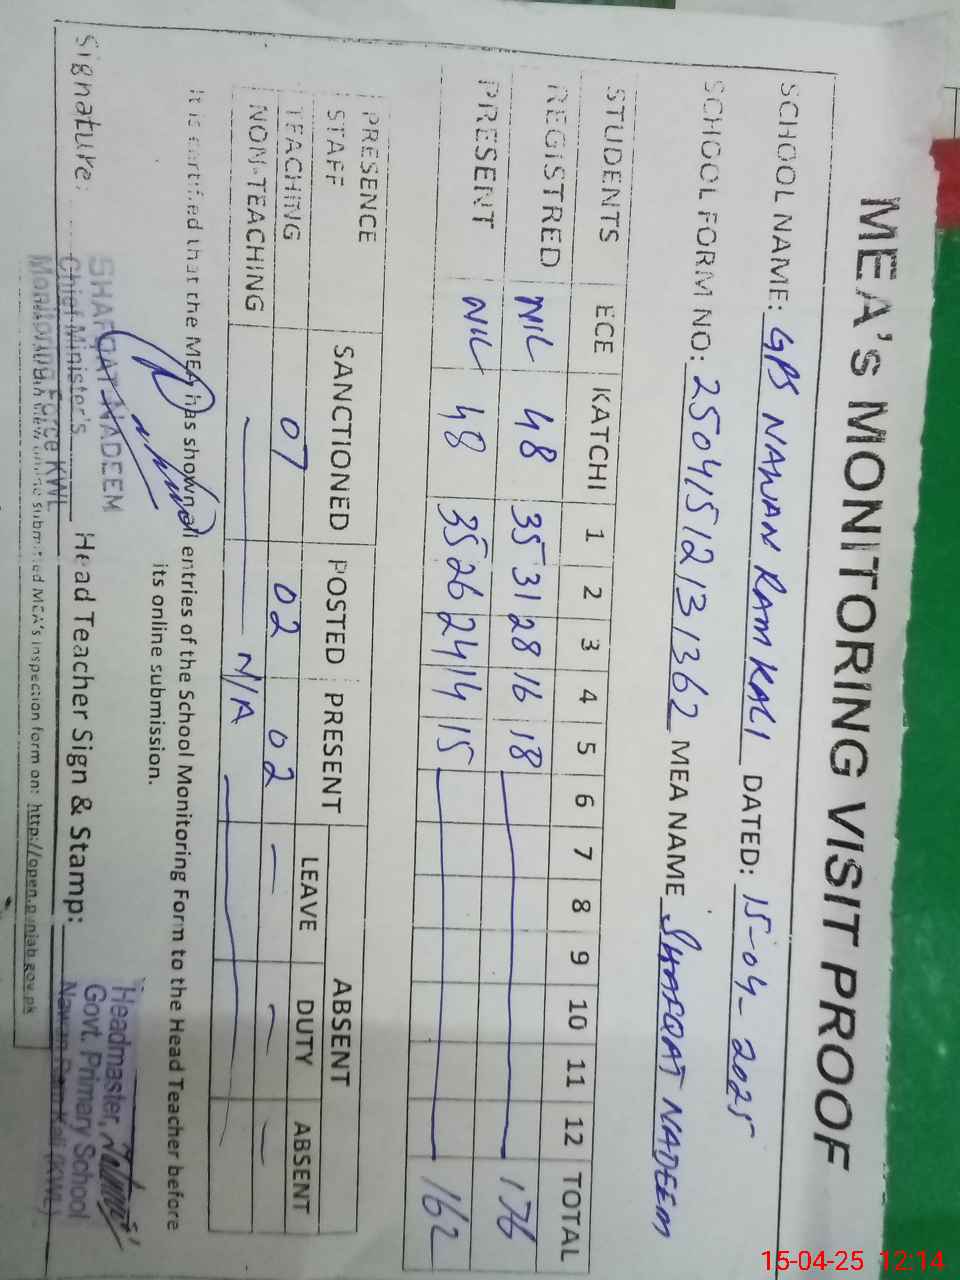 MEA's MONITORING VISIT PROOF
SCHOOL NAME: GPS NAWAN RAM KALI DATED: 15-04-2025
SCHOOL FORM NO: 25041512131362 MEA NAME SHAFQAT NADEEM
STUDENTS ECE KATCHI 1 2 3 4 5 6 7 8 9 10 11 12 TOTAL
REGISTRED NIL 48 35 31 28 16 18 176
PRESENT NIL 48 35 26 24 14 15 162
PRESENCE SANCTIONED POSTED PRESENT ABSENT
STAFF LEAVE DUTY ABSENT
TEACHING 07 02 02 — — —
NON-TEACHING N/A
It is certified that the MEA has shown all entries of the School Monitoring Form to the Head Teacher before
its online submission.
Signature: Head Teacher Sign & Stamp:
SHAFQAT NADEEM
Chief Minister's
Monitoring Force KWL
Headmaster,
Govt. Primary School
Nawan Ram Kali (KWL)
submitted MEA's inspection form on: http://open.punjab.gov.pk
15-04-25 12:14